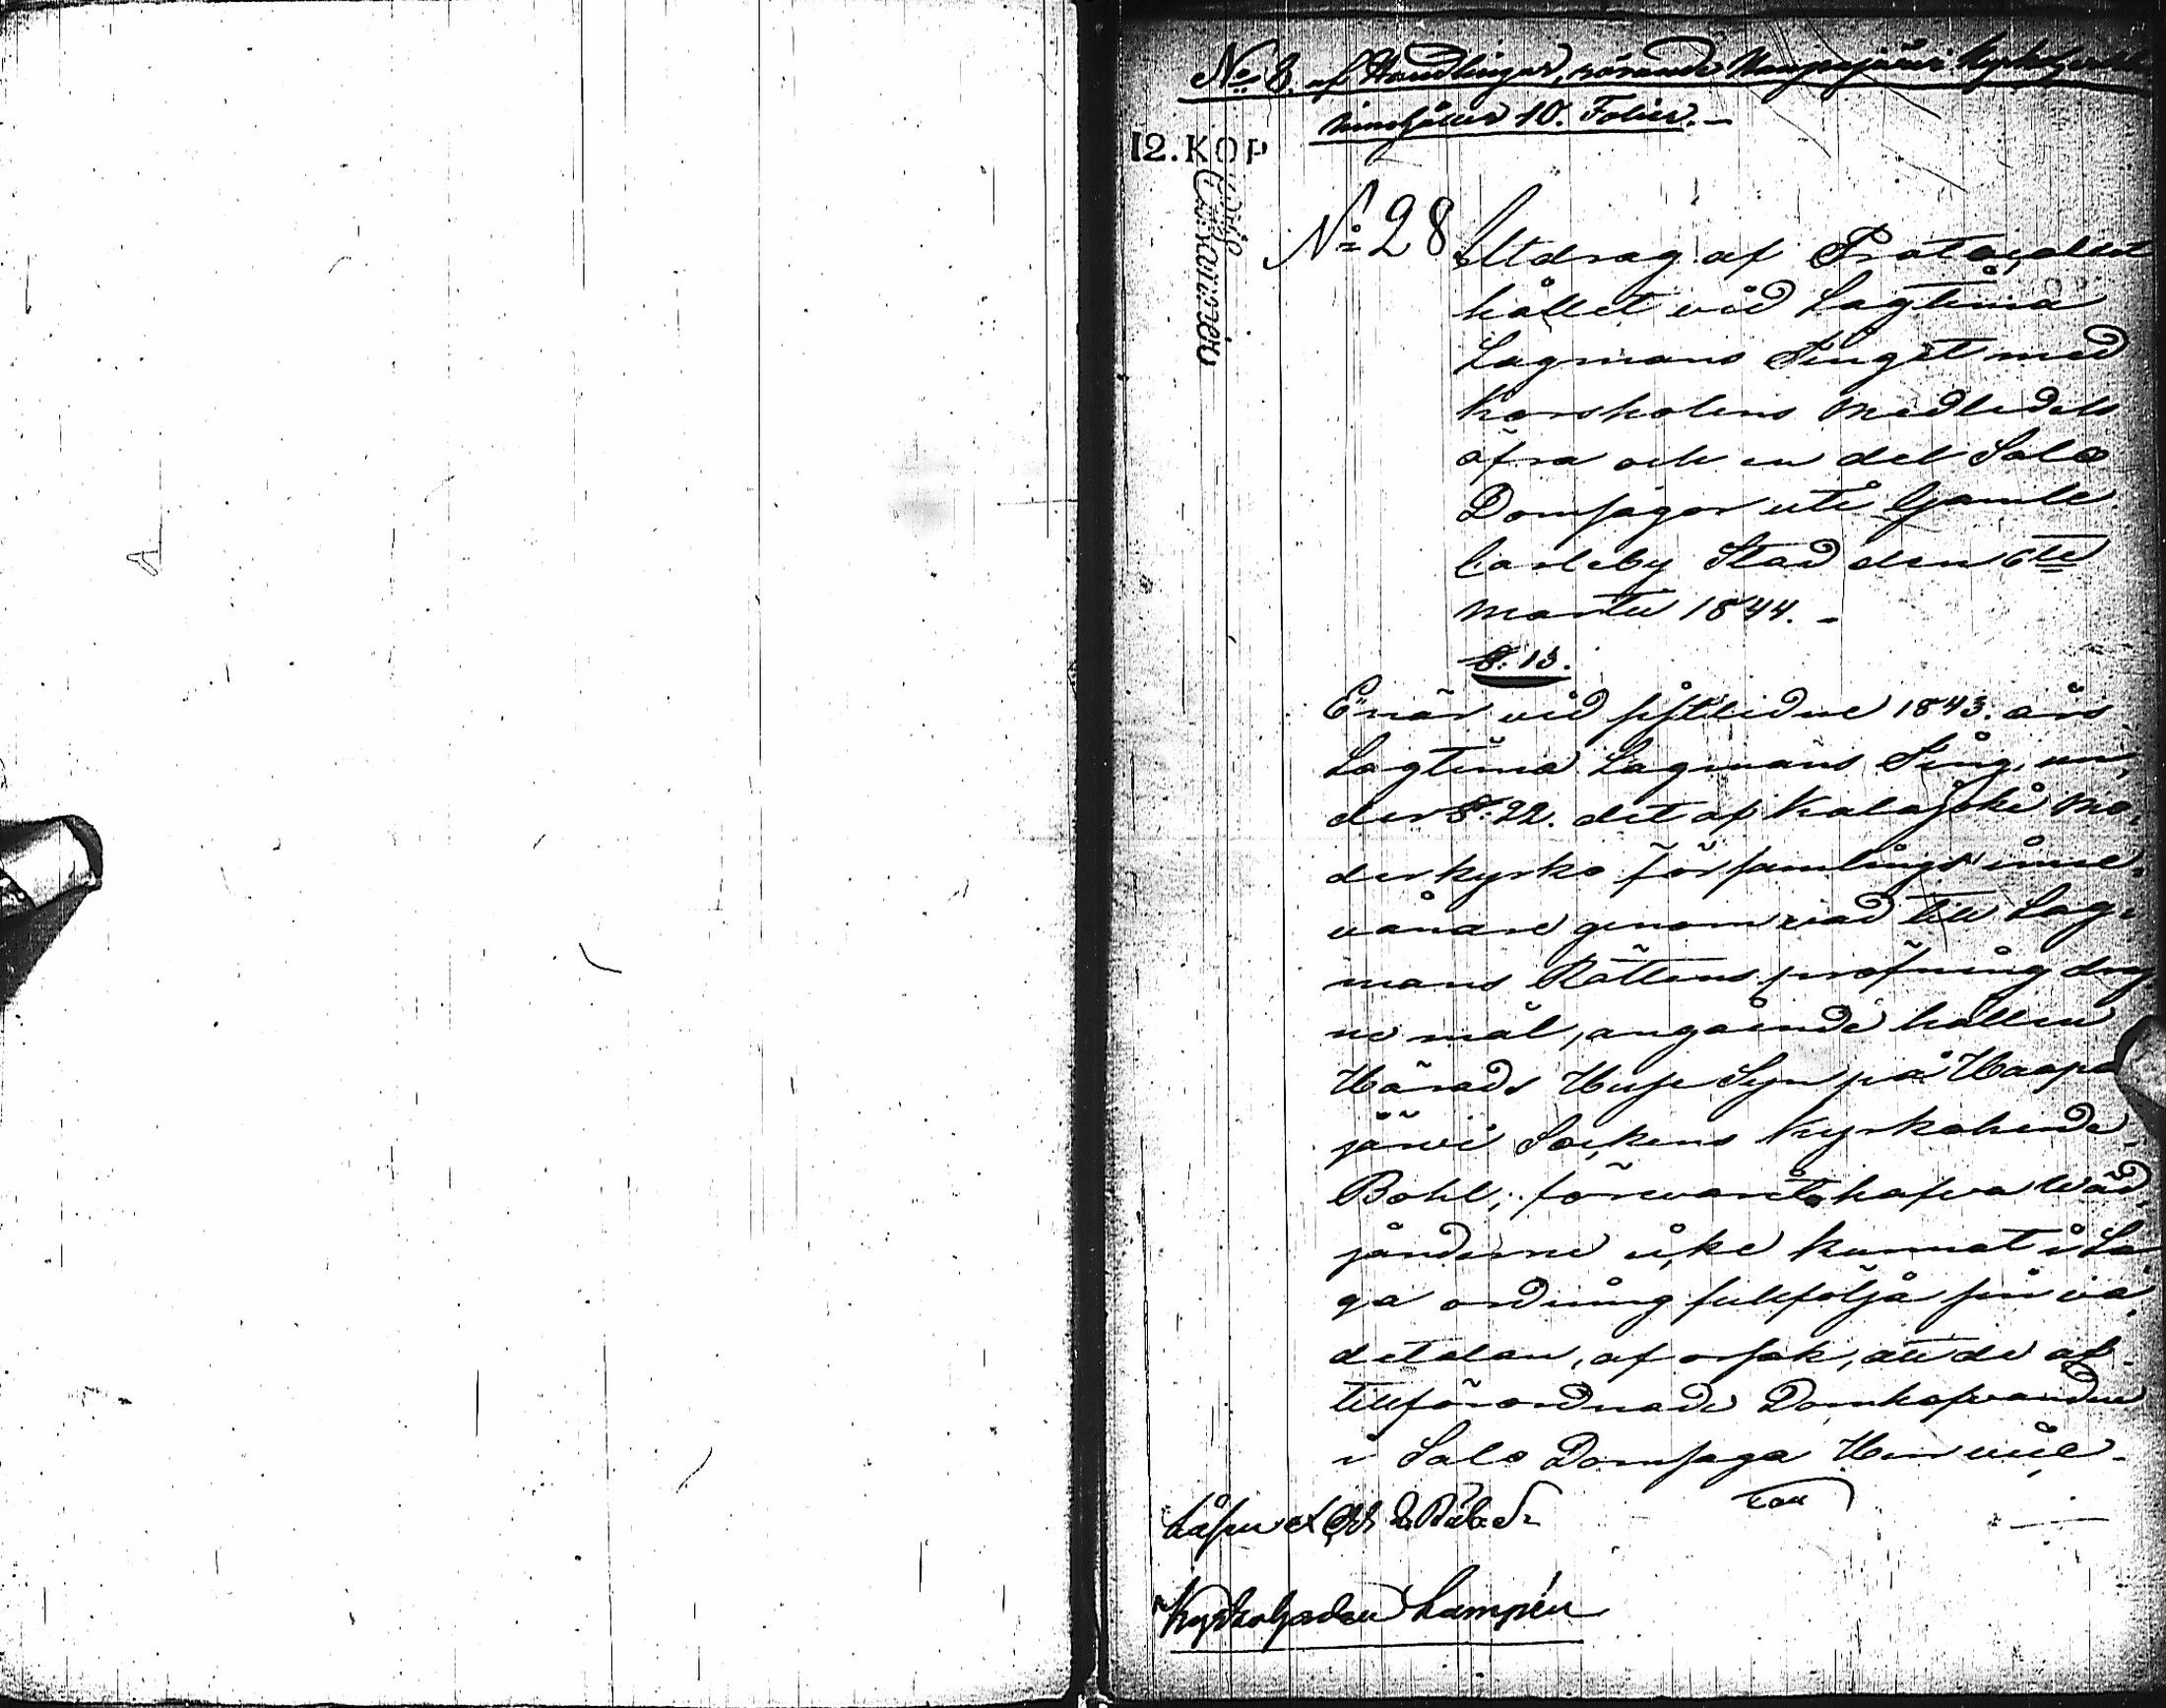 No 8. af Handlingar, rörande Haapajärvi Kyrkoherde
innehåller 10. Folier.-
12. KOP
No 28
Utdrag af Protocollet
hållet vid Lagtima
Lagmans Tinget med
Korsholms Medledels
öfra och en del Salo
Domsagor uti Gamle
Carleby Stad den 6te
Martii 1844.-
§. 13.
Enär vid sistledne 1843. års
Lagtima Lagmans Ting, un,
der §. 22. det af Kalajoki Mo,
derkyrko församlings inne,
vånare genom vad till Lag,
mans Rättens pröfning drag
ne mål, angående hållen
Härads Huse Syn på Haapa
järvi Sockens Kyrkoherde,
Bohl, förevarit, hafva Wäd,
janderne icke kunnat i La,
ga ordning fullfölja sin vä,
detalan, af orsak, att de af
tillförordnade Domhafvanden
i Salo Domsaga Herr vice
Kyrkoherden Lampén